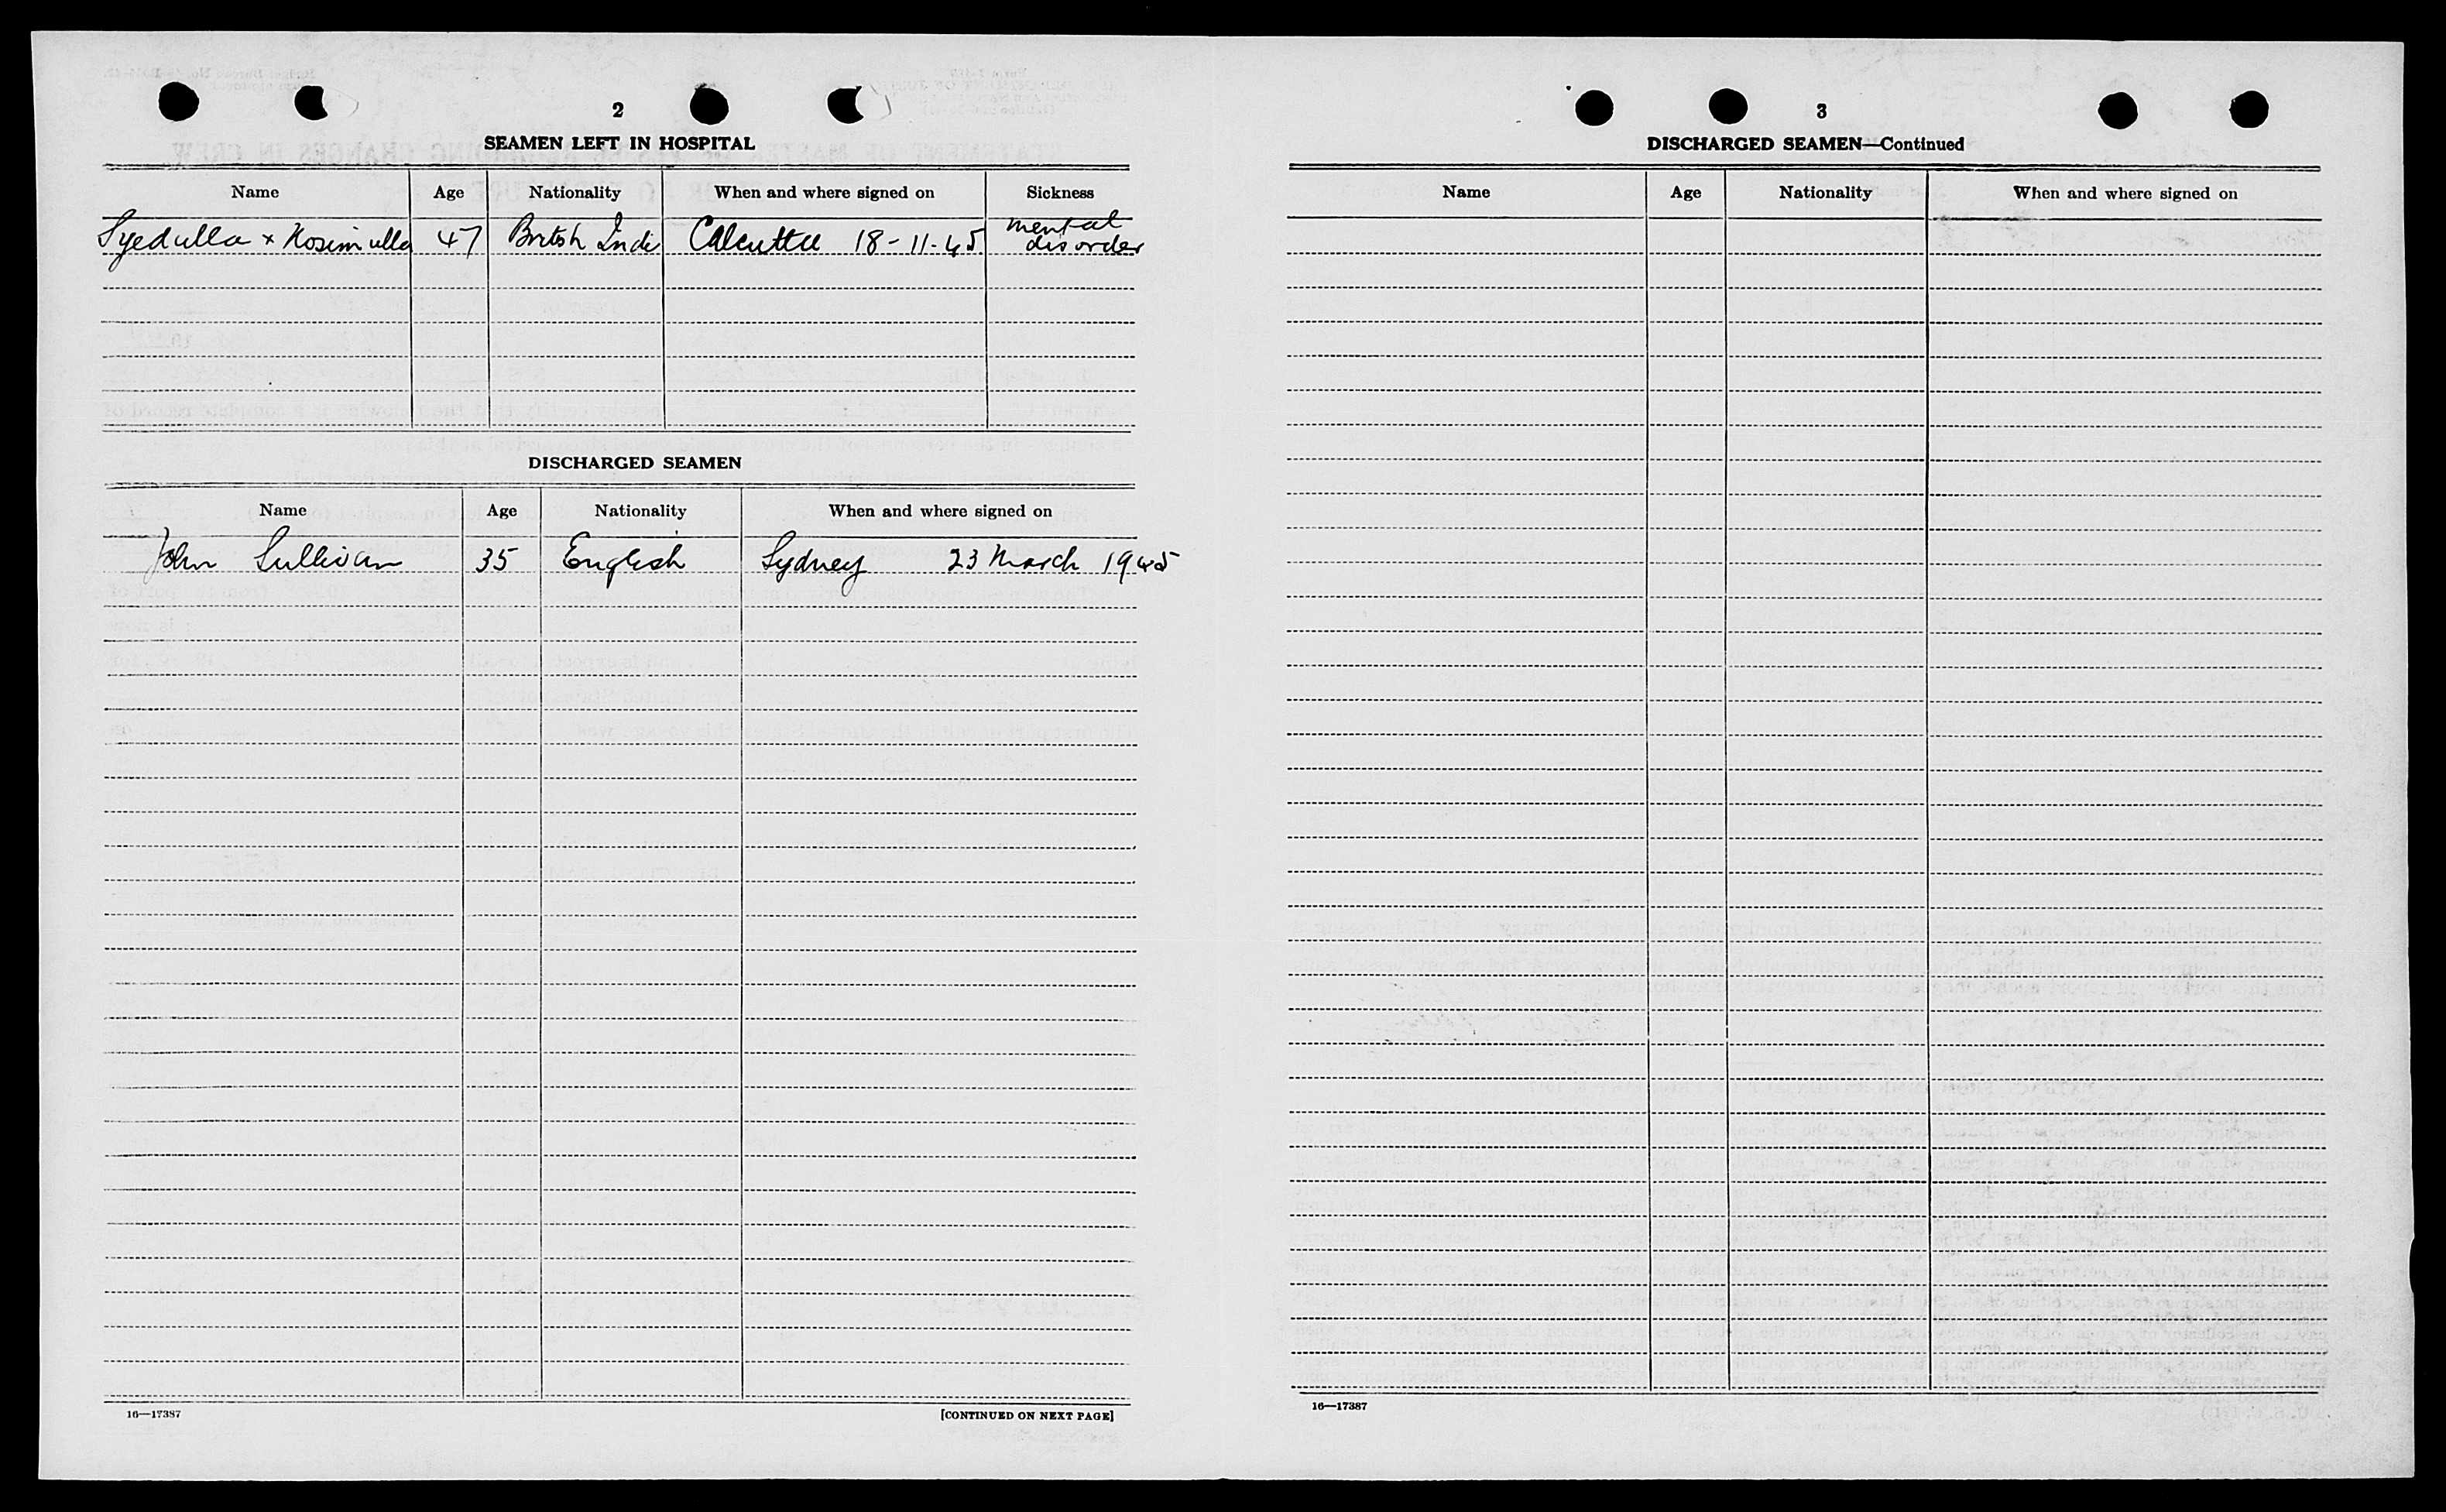 2
SEAMEN LEFT IN HOSPITAL
Name Age Nationality When and where signed on Sickness
Syedulla x Kosimulla 47 British Indi Calcutta 18-11-45 mental disorder
DISCHARGED SEAMEN
Name Age Nationality When and where signed on
John Sullivan 35 English Sydney 23 March 1945
16—17387 [CONTINUED ON NEXT PAGE]
3
DISCHARGED SEAMEN—Continued
Name Age Nationality When and where signed on
16—17387